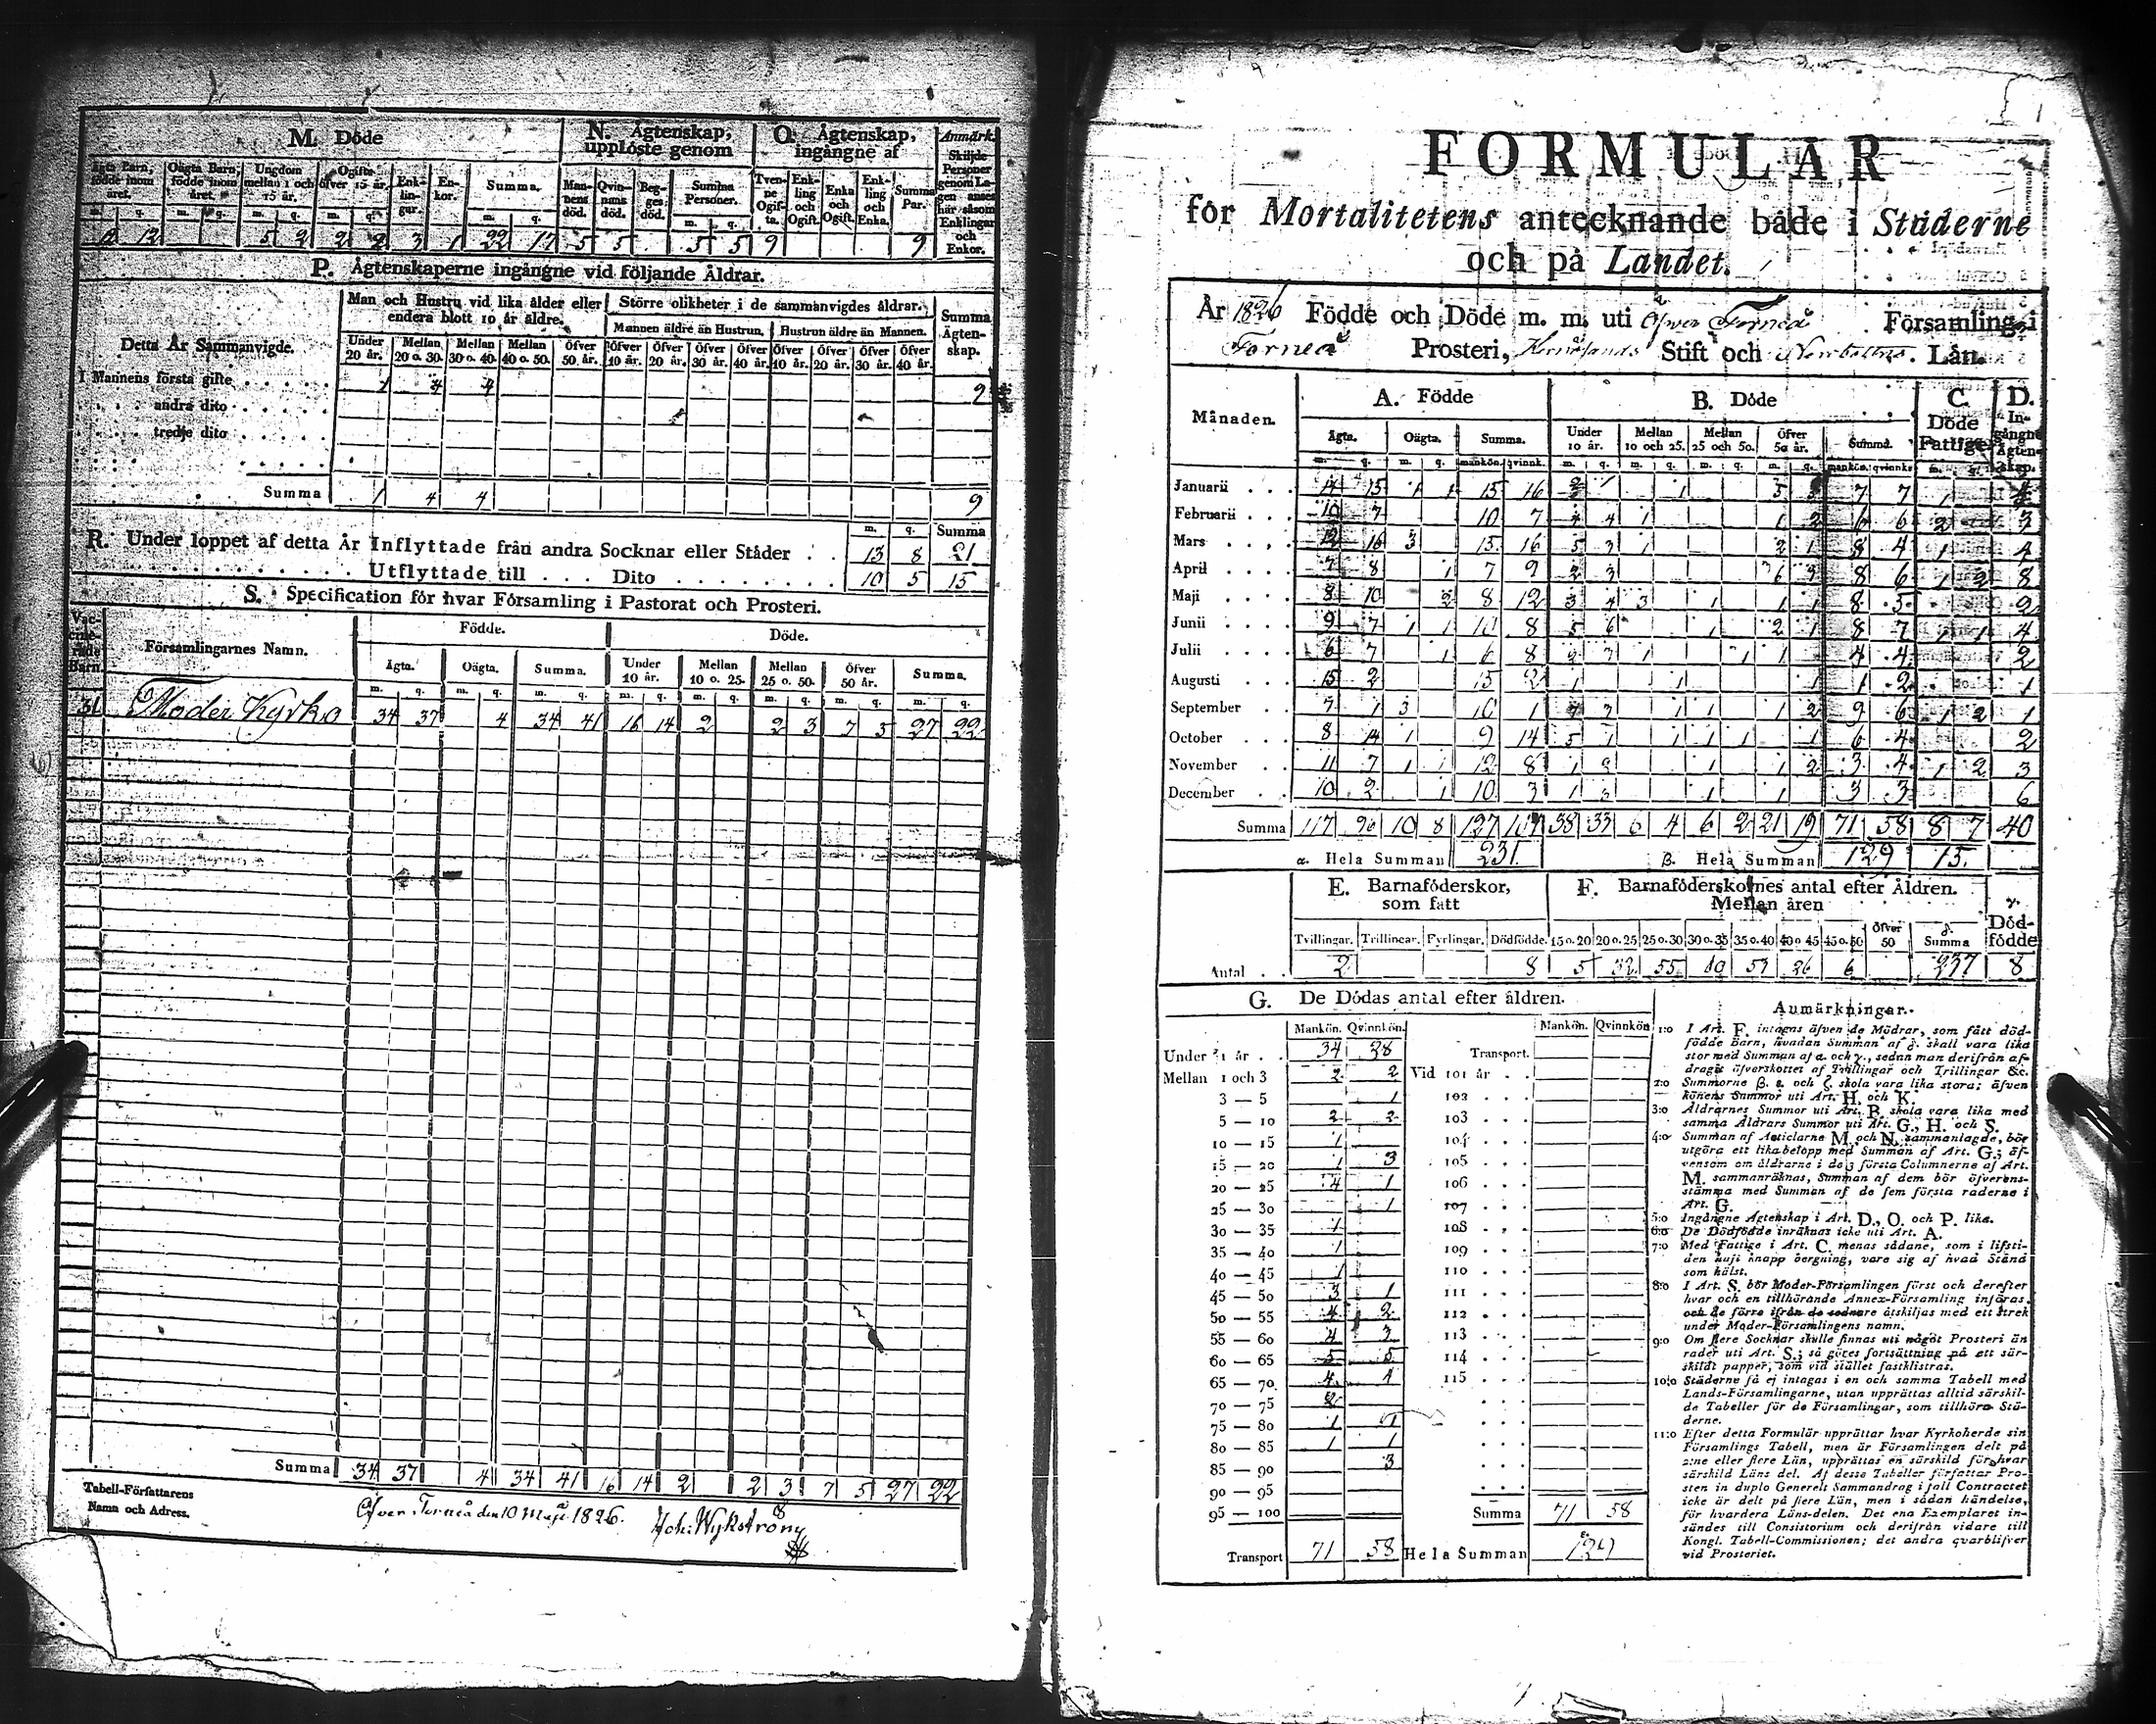 M. Döde
N. Ägtenskap, upplöste genom
O. Ägtenskap, ingångne af
Anmärk.
Ägta Barn, födde inom året.
Oägta Barn, födde inom året.
Ungdom mellan 1 och 15 år.
Ogifte öfver 15 år.
Enklingar.
Enkor.
Summa.
Mannens död.
Qvinnans död.
Begges död.
Summa Personer.
Tvenne Ogifta.
Enkling och Ogift.
Enka och Ogift.
Enkling och Enka.
Summa Par.
Skiljde Personer genom Lagen anses här såsom Enklingar och Enkor.
m. q. m. q. m. q. m. q. m. q. m. q.
12 12 5 2 2 2 3 1 22 17 5 5 5 5 9 9
P. Ägtenskaperne ingångne vid följande Åldrar.
Detta År Sammanvigde.
Man och Hustru vid lika ålder eller endera blott 10 år äldre.
Större olikheter i de sammanvigdes åldrar.
Summa Ägtenskap.
Mannen äldre än Hustrun.
Hustrun äldre än Mannen.
Under 20 år. Mellan 20 o. 30. Mellan 30 o. 40. Mellan 40 o. 50. Öfver 50 år. Öfver 10 år. Öfver 20 år. Öfver 30 år. Öfver 40 år. Öfver 10 år. Öfver 20 år. Öfver 30 år. Öfver 40 år.
I Mannens första gifte . . . . . 1 4 4
andra dito
tredje dito
Summa 1 4 4 9
m. q. Summa
R. Under loppet af detta År Inflyttade från andra Socknar eller Städer . . 13 8 21
Utflyttade till . . . Dito . . . . . . . . 10 5 15
S. Specification för hvar Församling i Pastorat och Prosteri.
Vaccinerade Barn.
Församlingarnes Namn.
Födde.
Döde.
Ägta. Oägta. Summa. Under 10 år. Mellan 10 o. 25. Mellan 25 o. 50. Öfver 50 år. Summa.
m. q. m. q. m. q. m. q. m. q. m. q. m. q. m. q.
31 Moder Kyrko 34 37 4 34 41 16 14 2 2 3 7 5 27 22
Summa 34 37 4 34 41 16 14 2 2 3 7 5 27 22
Tabell-Författarens
Namn och Adress.
Öfver Torneå den 10 Maji 1826. Joh: Wykström
FORMULAR
för Mortalitetens antecknande både i Städerne
och på Landet.
År 1826 Födde och Döde m. m. uti Öfver Torneå Församling, i
Torneå Prosteri, Hernösands Stift och Norrbottns Län.
Månaden.
A. Födde
B. Döde
C. Döde Fattige.
D. Ingångne Ägtenskap.
Ägta. Oägta. Summa. Under 10 år. Mellan 10 och 25. Mellan 25 och 50. Öfver 50 år. Summa.
m. q. m. q. mankön. qvinnk. m. q. m. q. m. q. m. q. mankön. qvinnk. m. q.
Januarii . . . 14 15 1 1 15 16 7 7 1
Februarii . . . 10 7 10 7 4 4 1 1 2 6 6 2 3
Mars . . . 12 16 3 15 16 5 3 1 2 1 8 4 1 4
April . . . . 7 8 1 7 9 2 3 6 3 8 6 1 2 8
Maji . . . . 8 10 2 8 12 3 4 3 1 1 1 8 5 2
Junii . . . . 9 7 1 1 10 8 5 6 1 2 1 8 7 1 1 4
Julii . . . . 6 7 1 6 8 2 3 1 1 1 4 4 2
Augusti . . . 15 2 15 2 1 1 1 1 2 1
September . . . 7 1 3 10 1 7 3 1 1 1 2 9 6 1 2 1
October . . . 8 14 1 9 14 5 1 1 1 1 1 6 4 2
November . . 11 7 1 1 12 8 1 2 1 1 2 3 4 1 2 3
December . . 10 2 1 10 3 1 3 1 1 3 3 6
Summa 117 96 10 8 127 104 38 33 6 4 6 2 21 19 71 58 8 7 40
α. Hela Summan 231 β. Hela Summan 129 15.
E. Barnaföderskor, som fått
F. Barnaföderskornes antal efter Åldren. Mellan åren
γ. Dödfödde
Tvillingar. Trillingar. Fyrlingar. Dödfödde. 15 o. 20 20 o. 25 25 o. 30 30 o. 35 35 o. 40 40 o. 45 45 o. 50 Öfver 50 δ. Summa
Antal . . 2 8 5 32 55 60 53 26 6 237 8
G. De Dödas antal efter åldren.
Mankön. Qvinnkön. Mankön. Qvinnkön
Under 1 år . . 34 28 Transport.
Mellan 1 och 3 2 2 Vid 101 år . .
3 — 5 1 102 . . .
5 — 10 2 2 103 . . .
10 — 15 1 104 . . .
15 — 20 1 3 105 . . .
20 — 25 4 1 106 . . .
25 — 30 1 107 . . .
30 — 35 1 108 . . .
35 — 40 1 109 . . .
40 — 45 1 110 . . .
45 — 50 3 1 111 . . .
50 — 55 4 2 112 . . .
55 — 60 4 3 113 . . .
60 — 65 5 5 114 . . .
65 — 70 4 4 115 . . .
70 — 75 2
75 — 80 1 1
80 — 85 1 1
85 — 90 3
90 — 95
95 — 100 Summa 71 58
Transport 71 58 Hela Summan 129
Anmärkningar.
1:o I Art. F. intagas äfven de Mödrar, som fått död-
födde Barn, hvadan Summan af δ. skall vara lika
stor med Summan af α. och γ., sedan man derifrån af-
dragit öfverskottet af Tvillingar och Trillingar &c.
2:o Summorne β. ε. och ζ. skola vara lika stora; äfven
könens Summor uti Art. H. och K.
3:o Åldrarnes Summor uti Art. B. skola vara lika med
samma Åldrars Summor uti Art. G., H. och S.
4:o Summan af Articlarne M. och N. sammanlagde, bör
utgöra ett lika belopp med Summan af Art. G.; äf-
vensom om åldrarne i de 3 första Columnerne af Art.
M. sammanräknas, Summan af dem bör öfverens-
stämma med Summan af de fem första raderne i
Art. G.
5:o Ingångne Ägtenskap i Art. D., O. och P. lika.
6:o De Dödfödde inräknas icke uti Art. A.
7:o Med Fattige i Art. C. menas sådane, som i lifsti-
den haft knapp bergning, vare sig af hvad Stånd
som hälst.
8:o I Art. S. bör Moder-Församlingen först och derefter
hvar och en tillhörande Annex-Församling införas,
och de förre ifrån de sednare åtskiljas med ett strek
under Moder-Församlingens namn.
9:o Om flere Socknar skulle finnas uti något Prosteri än
rader uti Art. S.; så göres fortsättning på ett sär-
skildt papper, som vid stället fastklistras.
10:o Städerne få ej intagas i en och samma Tabell med
Lands-Församlingarne, utan upprättas alltid särskil-
de Tabeller för de Församlingar, som tillhöra Stä-
derne.
11:o Efter detta Formulär upprättar hvar Kyrkoherde sin
Församlings Tabell, men är Församlingen delt på
2:ne eller flere Län, upprättas en särskild för hvar
särskild Läns del. Af desse Tabeller författar Pro-
sten in duplo Generelt Sammandrag i fall Contractet
icke är delt på flere Län, men i sådan händelse,
för hvardera Läns-delen. Det ena Exemplaret in-
sändes till Consistorium och derifrån vidare till
Kongl. Tabell-Commissionen; det andra qvarblifver
vid Prosteriet.